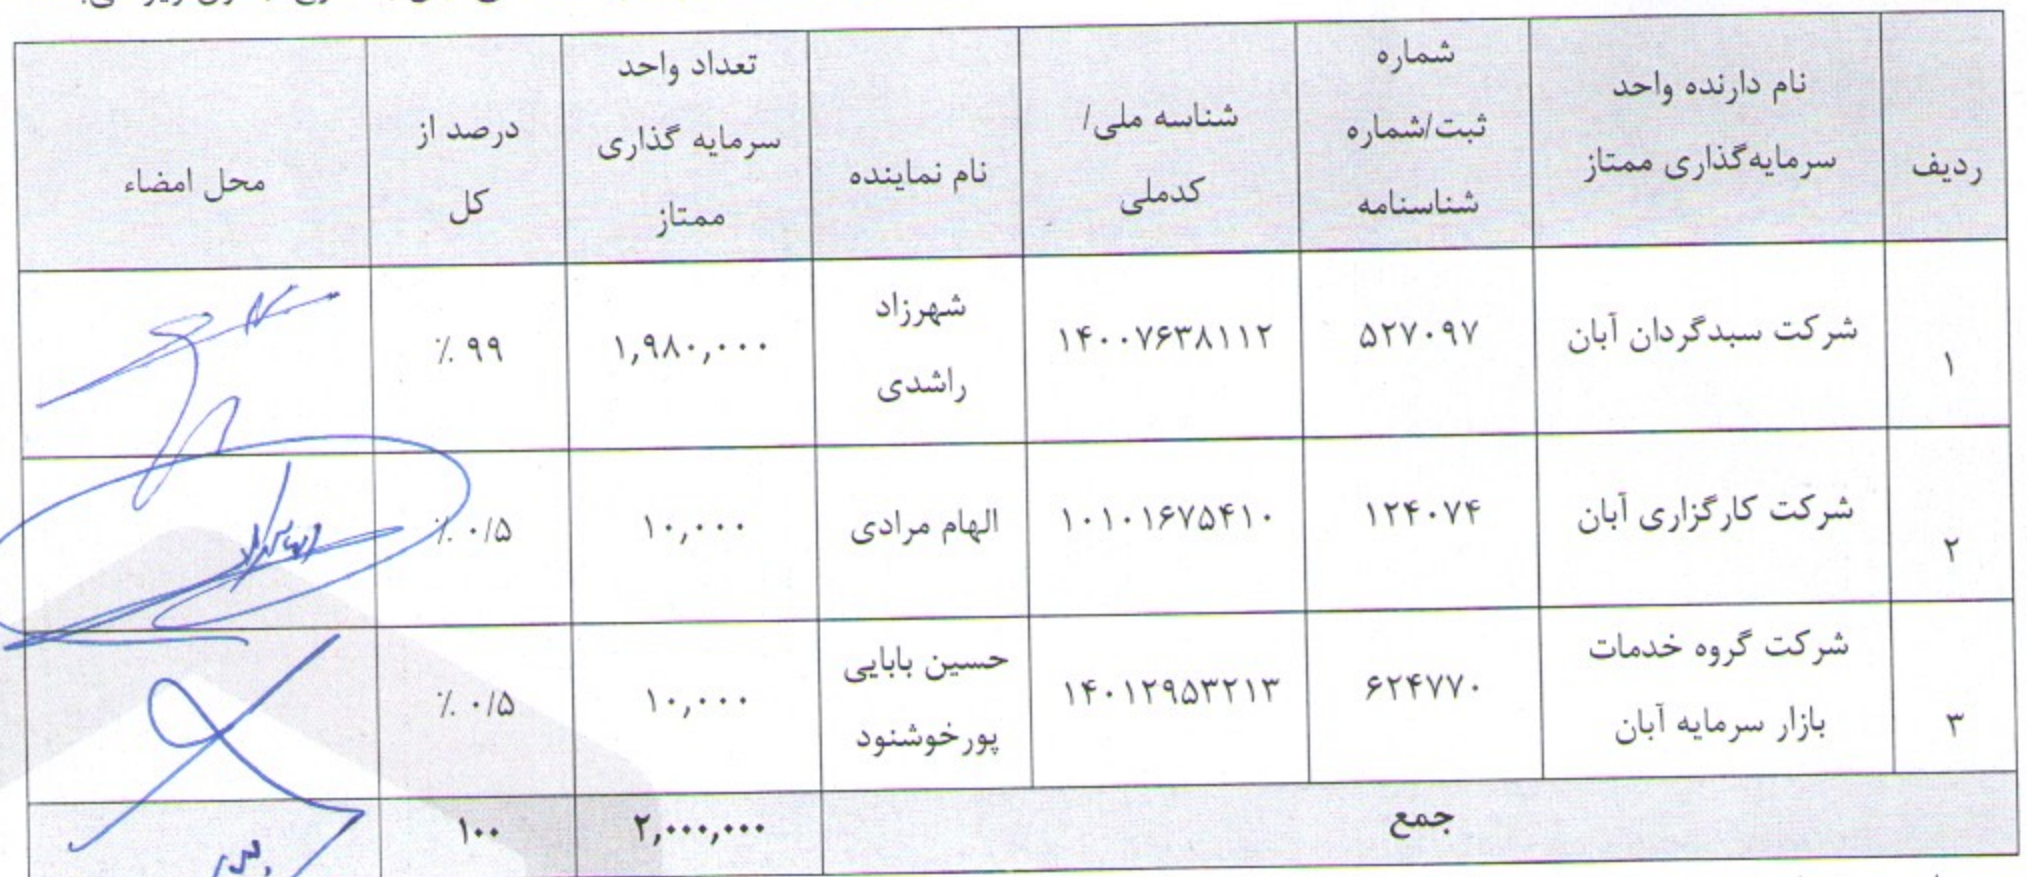 ردیف
نام دارنده واحد
سرمایه‌گذاری ممتاز
شماره
ثبت/شماره
شناسنامه
شناسه ملی/
کدملی
نام نماینده
تعداد واحد
سرمایه گذاری
ممتاز
درصد از
کل
محل امضاء
۱
شرکت سبدگردان آبان
۵۲۷۰۹۷
۱۴۰۰۷۶۳۸۱۱۲
شهرزاد
راشدی
۱,۹۸۰,۰۰۰
۹۹ ٪
۲
شرکت کارگزاری آبان
۱۲۴۰۷۴
۱۰۱۰۱۶۷۵۴۱۰
الهام مرادی
۱۰,۰۰۰
۰/۵ ٪
۳
شرکت گروه خدمات
بازار سرمایه آبان
۶۲۴۷۷۰
۱۴۰۱۲۹۵۳۲۱۳
حسین بابایی
پورخوشنود
۱۰,۰۰۰
۰/۵ ٪
جمع
۲,۰۰۰,۰۰۰
۱۰۰